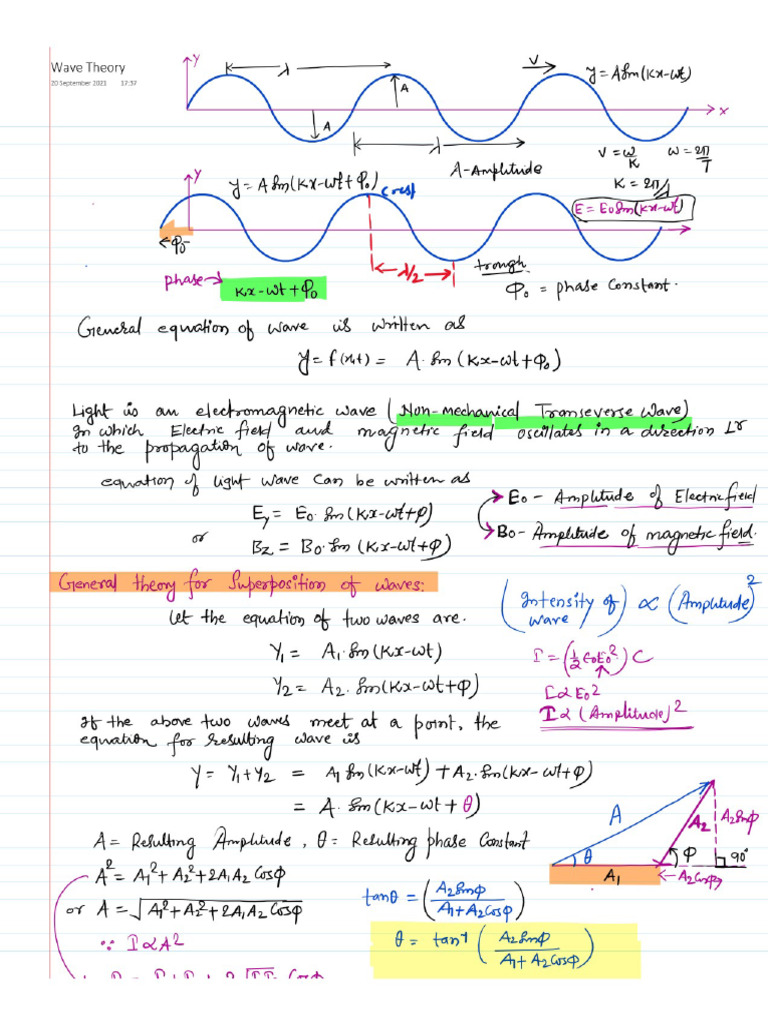 Wave Theory
20 September 2021 17:37
y
λ
A
A
V
y = A sin(kx-wt)
x
λ
A-Amplitude
V = w/k w = 2π/T
K = 2π/λ
y
y = A sin(kx-wt+φ₀)
Crest
E = E₀ sin(kx-wt)
φ₀
λ/2
trough
phase
kx-wt+φ₀
φ₀ = phase Constant.
General equation of wave is written as
y = f(x,t) = A. sin(kx-wt+φ₀)
Light is an electromagnetic wave (Non-mechanical Transeverse Wave)
in which Electric field and magnetic field oscillates in a direction ⊥r
to the propagation of wave.
equation of light wave can be written as
Ey = E₀. sin(kx-wt+φ)
or
Bz = B₀. sin(kx-wt+φ)
E₀ - Amplitude of Electric field
B₀ - Amplitude of magnetic field.
General theory for Superposition of waves:
(Intensity of wave) ∝ (Amplitude)²
Let the equation of two waves are.
Y₁ = A₁. sin(kx-wt)
Y₂ = A₂. sin(kx-wt+φ)
I = (1/2 ε₀E₀²) C
I ∝ E₀²
I ∝ (Amplitude)²
If the above two waves meet at a point, the
equation for resulting wave is
Y = Y₁+Y₂ = A₁ sin(kx-wt) + A₂. sin(kx-wt+φ)
= A. sin(kx-wt+θ)
A = Resulting Amplitude, θ = Resulting phase Constant
A² = A₁²+A₂²+2A₁A₂ Cosφ
or A = √(A₁²+A₂²+2A₁A₂ Cosφ)
∵ I ∝ A²
tanθ = (A₂ sinφ / A₁+A₂ Cosφ)
θ = tan⁻¹ (A₂ sinφ / A₁+A₂ Cosφ)
A
A₂
A₂ sinφ
θ
φ
90°
A₁
A₂ Cosφ